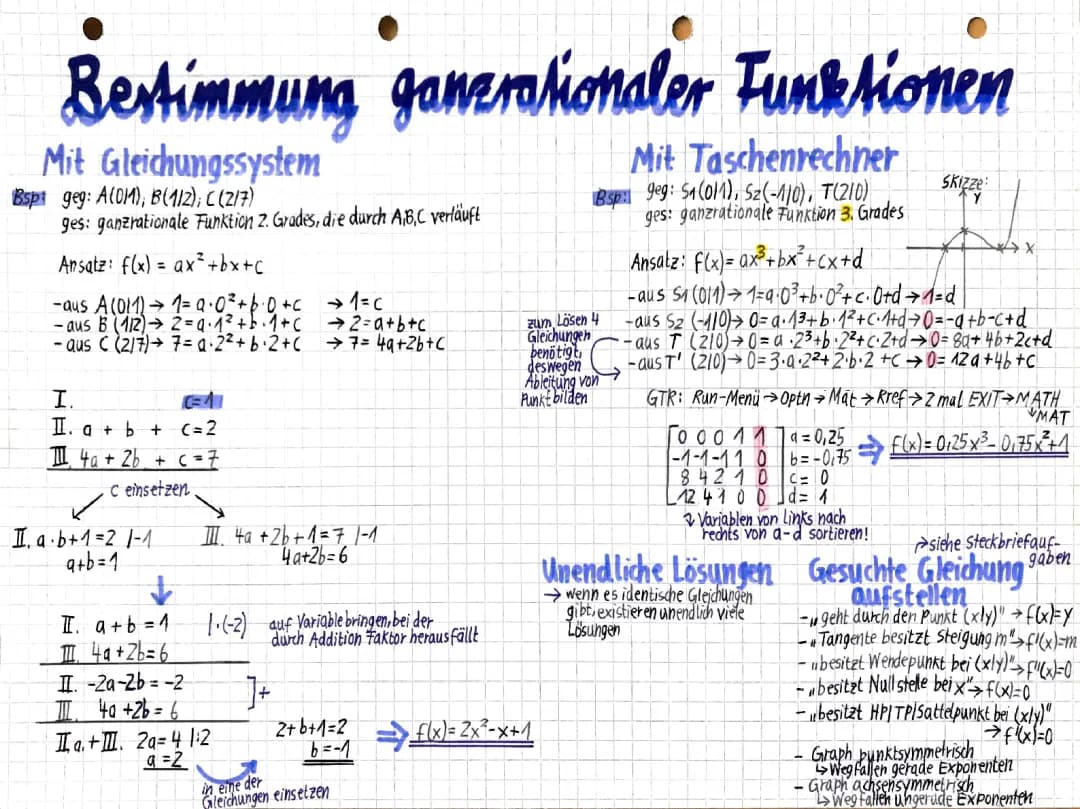 Bestimmung ganzrationaler Funktionen
Mit Gleichungssystem
Bsp: geg: A(0/1), B(1/2); C(2/7)
ges: ganzrationale Funktion 2. Grades, die durch A,B,C verläuft
Ansatz: f(x) = ax²+bx+c
-aus A(0/1) → 1= a·0²+b·0+c → 1=c
-aus B (1/2) → 2=a·1²+b·1+c → 2=a+b+c
-aus C (2/7) → 7= a·2²+b·2+c → 7= 4a+2b+c
I. c=1
II. a + b + c=2
III. 4a + 2b + c=7
c einsetzen
II. a·b+1=2 /-1 III. 4a+2b+1=7 /-1
a+b=1 4a+2b=6
II. a+b=1 |·(-2) auf Variable bringen, bei der
durch Addition Faktor herausfällt
III. 4a+2b=6
II. -2a-2b=-2
III. 4a+2b=6 ]+
IIa.+III. 2a=4 |:2 2+b+1=2
a=2 b=-1 ⇒ f(x)=2x²-x+1
in eine der
Gleichungen einsetzen
Mit Taschenrechner
Bsp: geg: S1(0/1), S2(-1/0), T(2/0)
ges: ganzrationale Funktion 3. Grades
Skizze:
y
x
Ansatz: f(x)= ax³+bx²+cx+d
-aus S1 (0/1) → 1=a·0³+b·0²+c·0+d → 1=d
-aus S2 (-1/0) → 0=a·1³+b·1²+c·1+d → 0=-a+b-c+d
-aus T (2/0) → 0=a·2³+b·2²+c·2+d → 0= 8a+4b+2c+d
-aus T' (2/0) → 0=3·a·2²+2·b·2+c → 0= 12a+4b+c
zum Lösen 4
Gleichungen
benötigt,
deswegen
Ableitung von
Punkt bilden
GTR: Run-Menü → Optn → Mat → Rref → 2 mal EXIT → MATH
↓MAT
0 0 0 1 1 a=0,25
-1 -1 -1 1 0 b=-0,75
8 4 2 1 0 c= 0
12 4 1 0 0 d= 1
⇒ f(x)=0,25x³-0,75x²+1
Variablen von links nach
rechts von a-d sortieren!
Unendliche Lösungen
→ wenn es identische Gleichungen
gibt, existieren unendlich viele
Lösungen
siehe Steckbriefauf-
gaben
Gesuchte Gleichung
aufstellen
-„geht durch den Punkt (x/y)" → f(x)=y
-„Tangente besitzt Steigung m" → f'(x)=m
-„besitzt Wendepunkt bei (x/y)" → f''(x)=0
-„besitzt Nullstelle bei x" → f(x)=0
-„besitzt HP/TP/Sattelpunkt bei (x/y)"
→ f'(x)=0
- Graph punktsymmetrisch
↳ Wegfallen gerade Exponenten
- Graph achsensymmetrisch
↳ Wegfallen ungerade Exponenten